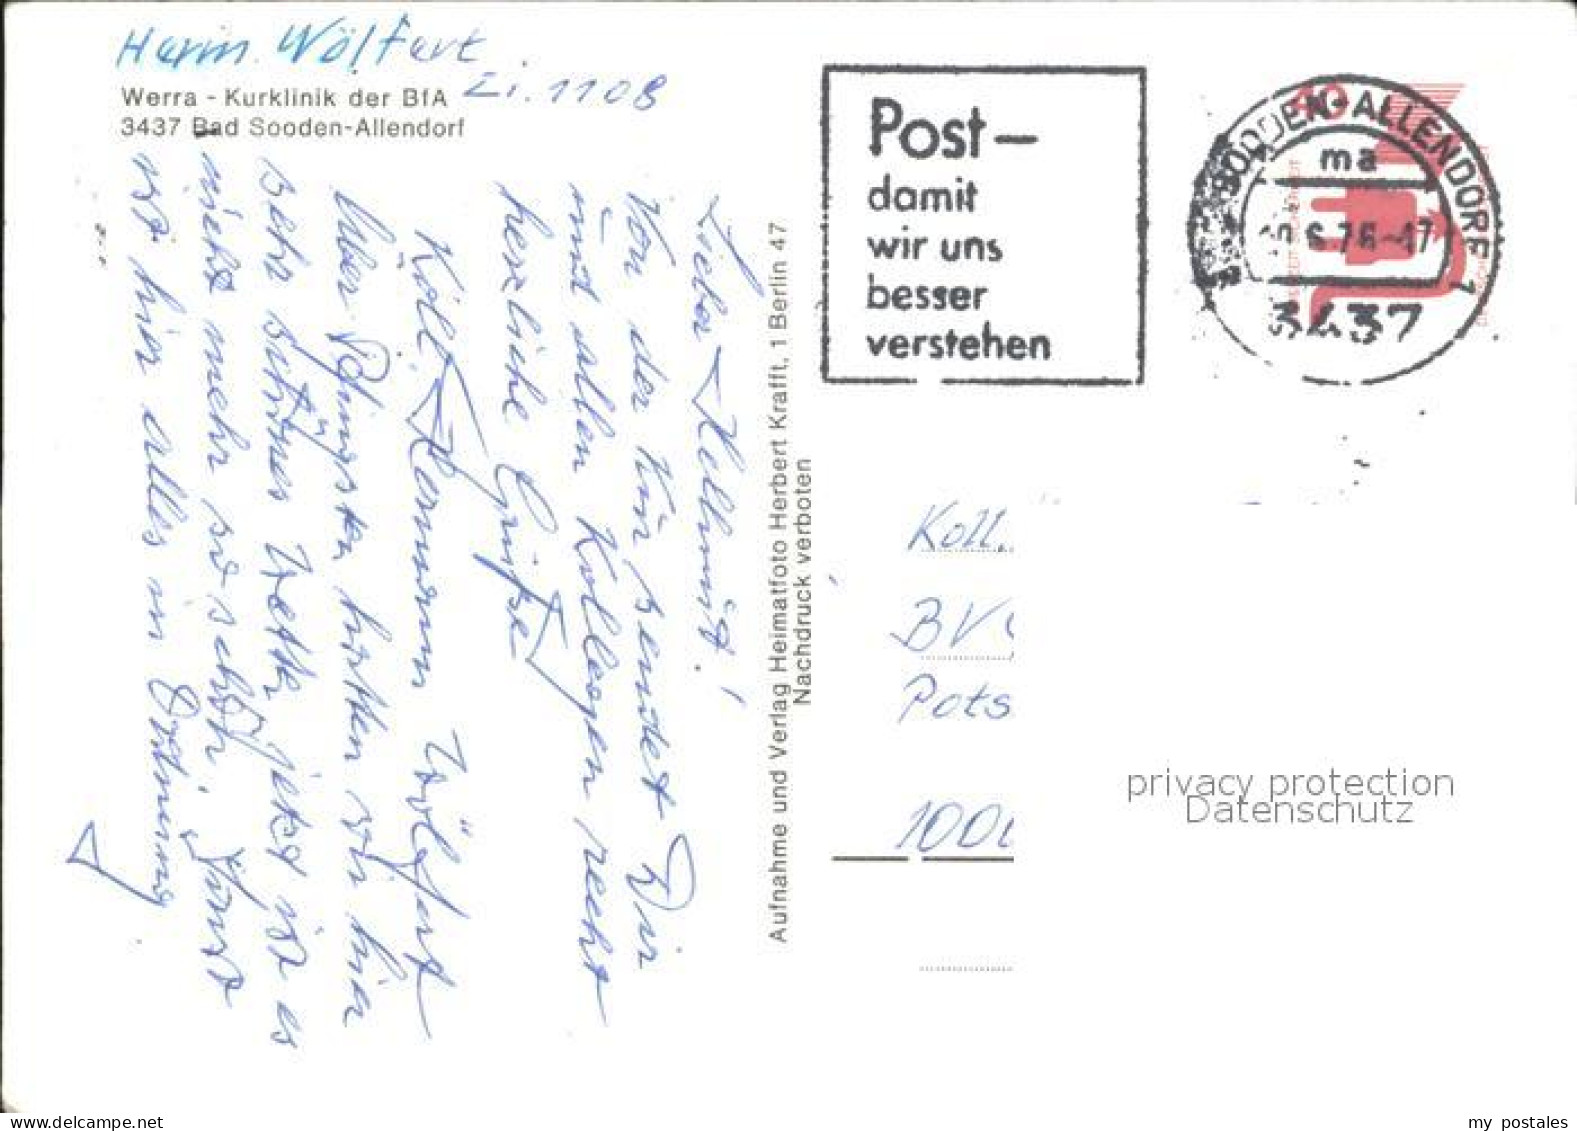 Herm. Wölfert
Zi. 1108
Werra - Kurklinik der BfA
3437 Bad Sooden-Allendorf
Lieber Hellmut!
Von der Kur sendet Dir
und allen Kollegen recht
herzliche Grüße
Koll. Hermann Wölfert
Über Pfingsten hatten wir hier
sehr schönes Wetter, jetzt ist es
nicht mehr so schön. Sonst
ist hier alles in Ordnung
Aufnahme und Verlag Heimatfoto Herbert Krafft, 1 Berlin 47
Nachdruck verboten
Post–
damit
wir uns
besser
verstehen
40
SOODEN-ALLENDORF 1
ma
6.76-17
3437
Koll.
BV
Pots
100
privacy protection
Datenschutz
www.delcampe.net
my_postales